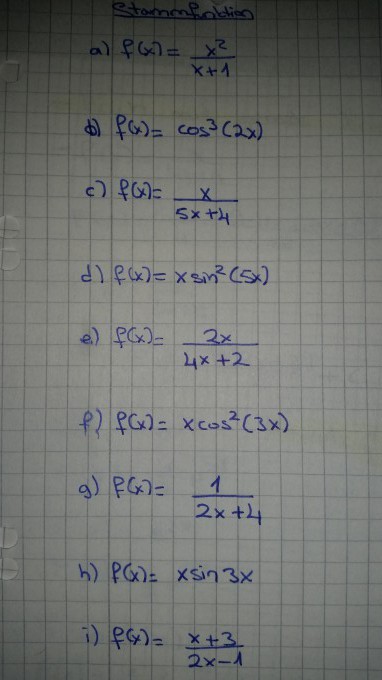 Stammfunktion
a) f(x) = x²/x+1
b) f(x) = cos³(2x)
c) f(x) = x/5x+4
d) f(x) = x sin²(5x)
e) f(x) = 2x/4x+2
f) f(x) = x cos²(3x)
g) f(x) = 1/2x+4
h) f(x) = x sin 3x
i) f(x) = x+3/2x-1